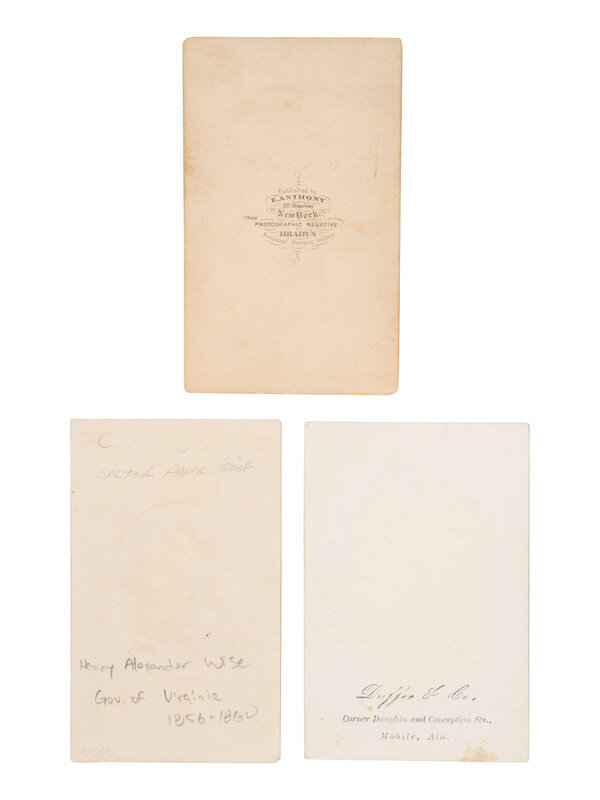 Published by
E. ANTHONY
501 Broadway
New York.
FROM
PHOTOGRAPHIC NEGATIVE
BRADY'S
National Portrait Gallery
SALTED PAPER Print
Henry Alexander Wise
Gov. of Virginia
1856-1860
Duffee & Co,
Corner Dauphin and Conception Sts.,
Mobile, Ala.